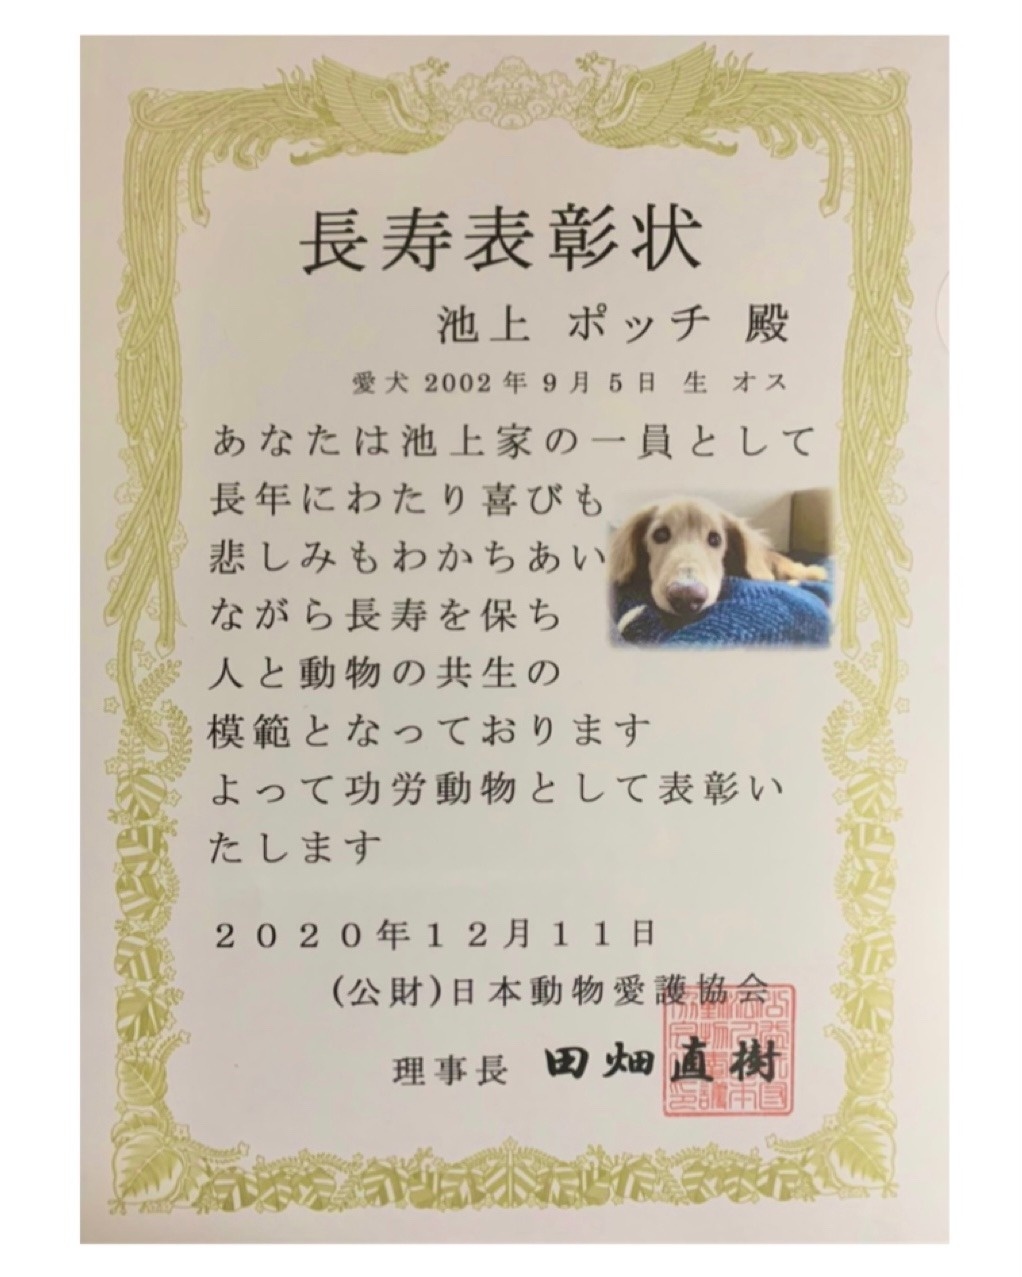 長寿表彰状
池上 ポッチ 殿
愛犬 2002年9月5日 生 オス
あなたは池上家の一員として
長年にわたり喜びも
悲しみもわかちあい
ながら長寿を保ち
人と動物の共生の
模範となっております
よって功労動物として表彰い
たします
2020年12月11日
(公財)日本動物愛護協会
理事長 田畑直樹